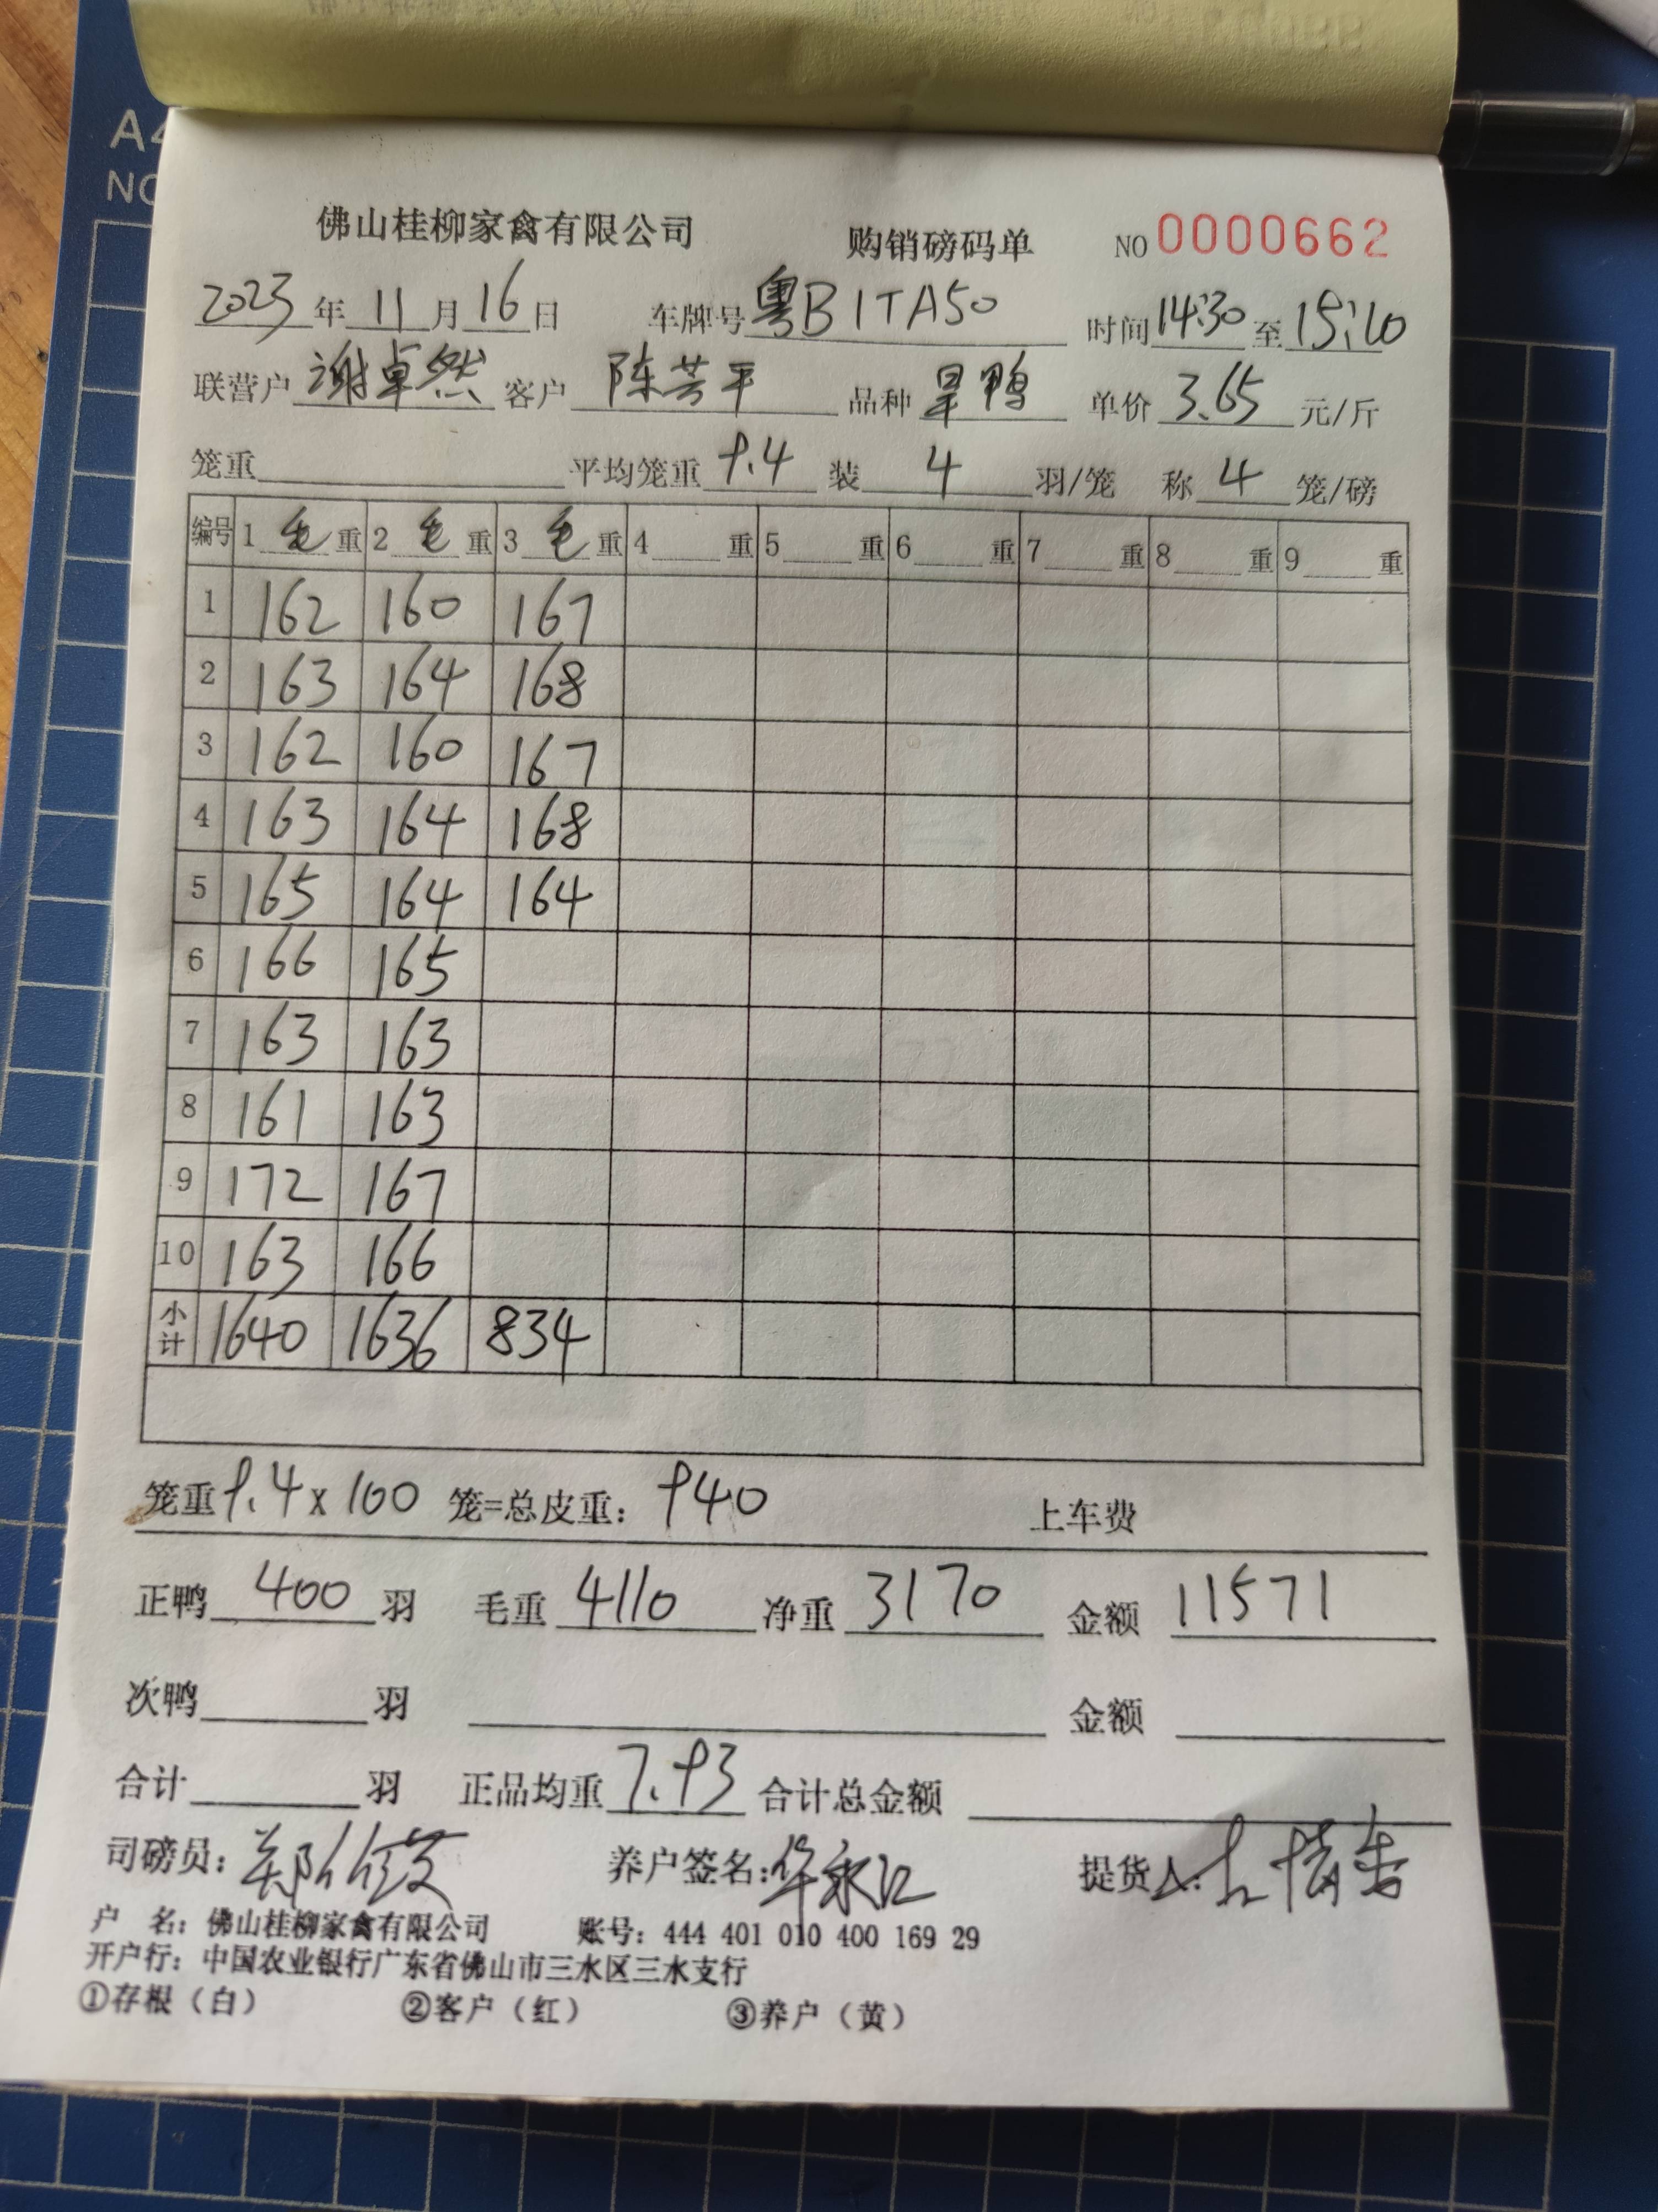 A4
佛山桂柳家禽有限公司 购销磅码单 NO 0000662
2023年11月16日 车牌号粤B1TA50 时间14:30至15:10
联营户谢卓然 客户陈芸平 品种旱鸭 单价3.65元/斤
笼重 平均笼重9.4 装4羽/笼 称4笼/磅
编号 1毛重 2毛重 3毛重 4重 5重 6重 7重 8重 9重
1 162 160 167
2 163 164 168
3 162 160 167
4 163 164 168
5 165 164 164
6 166 165
7 163 163
8 161 163
9 172 167
10 163 166
小计 1640 1636 834
笼重9.4x100 笼=总皮重：940 上车费
正鸭400羽 毛重4110 净重3170 金额11571
次鸭 羽 金额
合计 羽 正品均重7.93 合计总金额
司磅员： 养户签名： 提货人：
户 名：佛山桂柳家禽有限公司 账号：444 401 010 400 169 29
开户行：中国农业银行广东省佛山市三水区三水支行
①存根（白） ②客户（红） ③养户（黄）